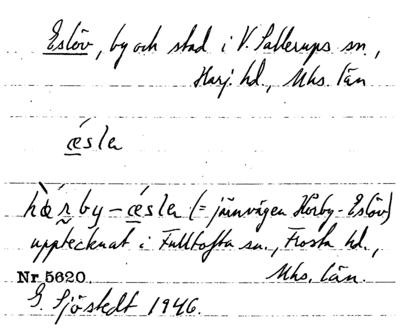 Eslöv, by och stad i V. Sallerups sn.,
Harj. hd., Mhs. län
ǽsla
hæ̀ŗby – ǽsla (= järnvägen Hörby - Eslöv)
upptecknat i Fulltofta sn., Frosta hd.,
Mhs. län.
Nr 5620.
G. Sjöstedt 1946.